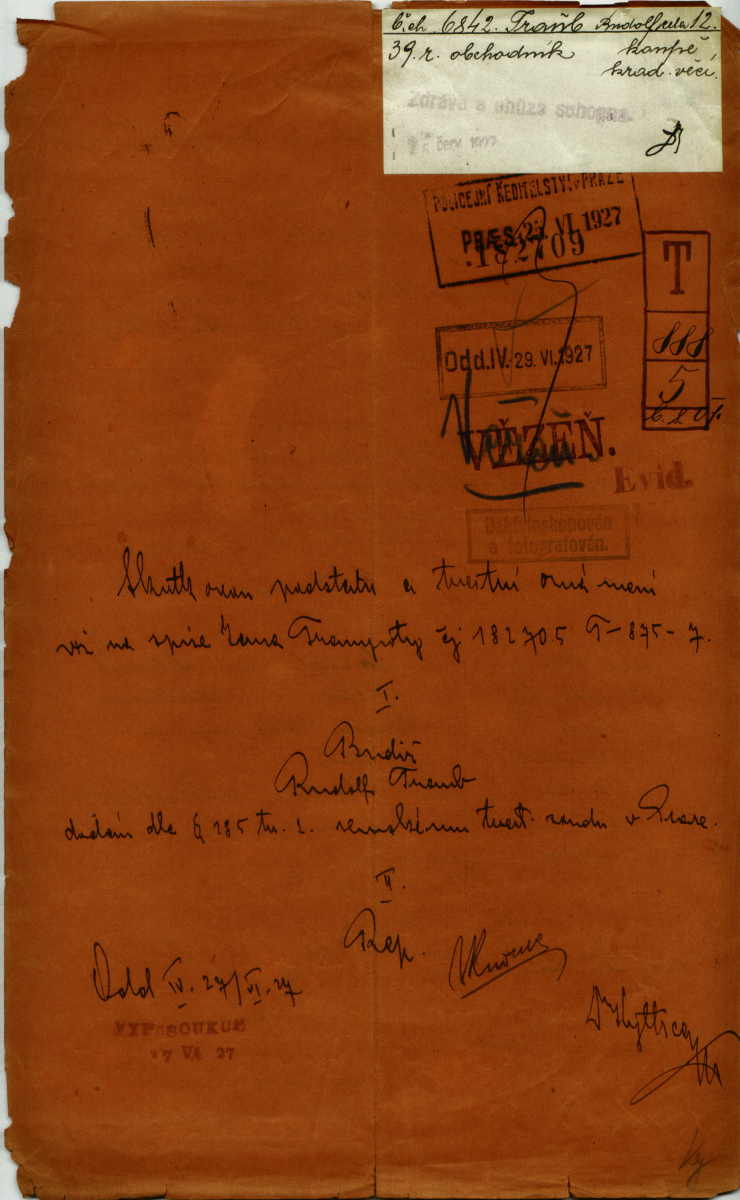 Č.ch. 6842. Traub Rudolf cela 12.
39.r. obchodník koupě
krad. věcí.
Zdráva a chůze schopna.
červ. 1927
POLICEJNÍ ŘEDITELSTVÍ v PRAZE
PRÆS. 25. VI. 1927
182709
T
888
5
Odd. IV. 29. VI. 1927
VĚZEŇ.
Evid.
Daktyloskopován
a fotografován.
Skutk ovou podstatu a trestní oznámení
viz na spise Jana Trampoty čj 182705 T-875-7.
I.
Budiž
Rudolf Traub
dodán dle § 185 tr. z. zemskému trest. soudu v Praze.
II.
Rep.
Odd IV. 27/VI. 27
VYP. SOUKUP
27 VI. 27